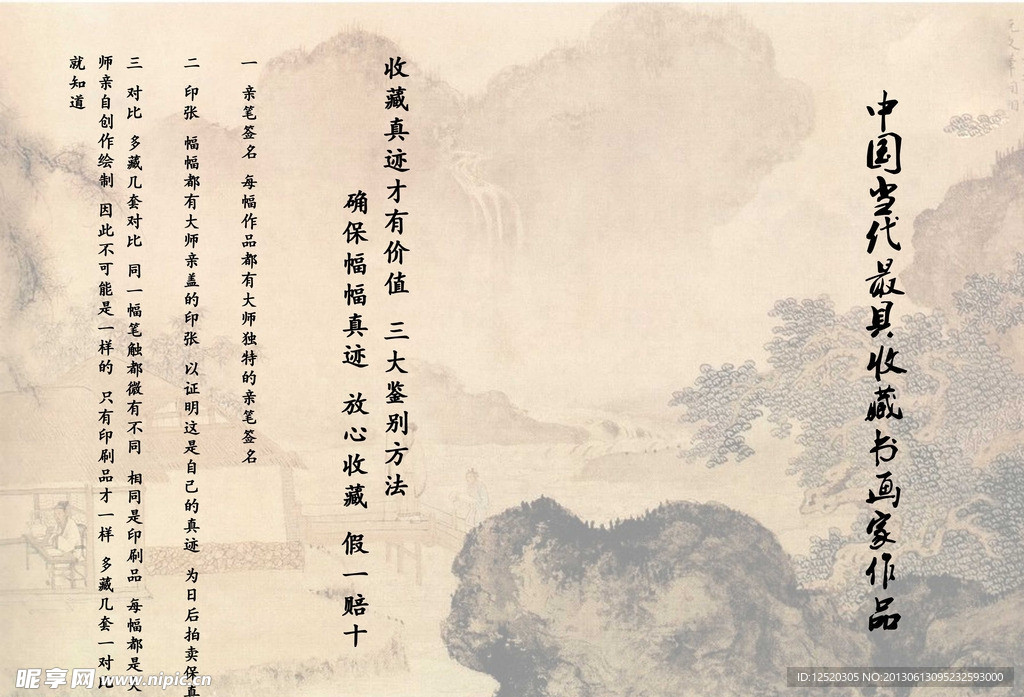 中国当代最具收藏书画家作品
收藏真迹才有价值 三大鉴别方法
确保幅幅真迹 放心收藏 假一赔十
一 亲笔签名 每幅作品都有大师独特的亲笔签名
二 印张 幅幅都有大师亲盖的印张 以证明这是自己的真迹 为日后拍卖保真
三 对比 多藏几套对比 同一幅笔触都微有不同 相同是印刷品 每幅都是大
师亲自创作绘制 因此不可能是一样的 只有印刷品才一样 多藏几套一对比
就知道
昵享网 www.nipic.cn
ID:12520305 NO:20130613095232593000